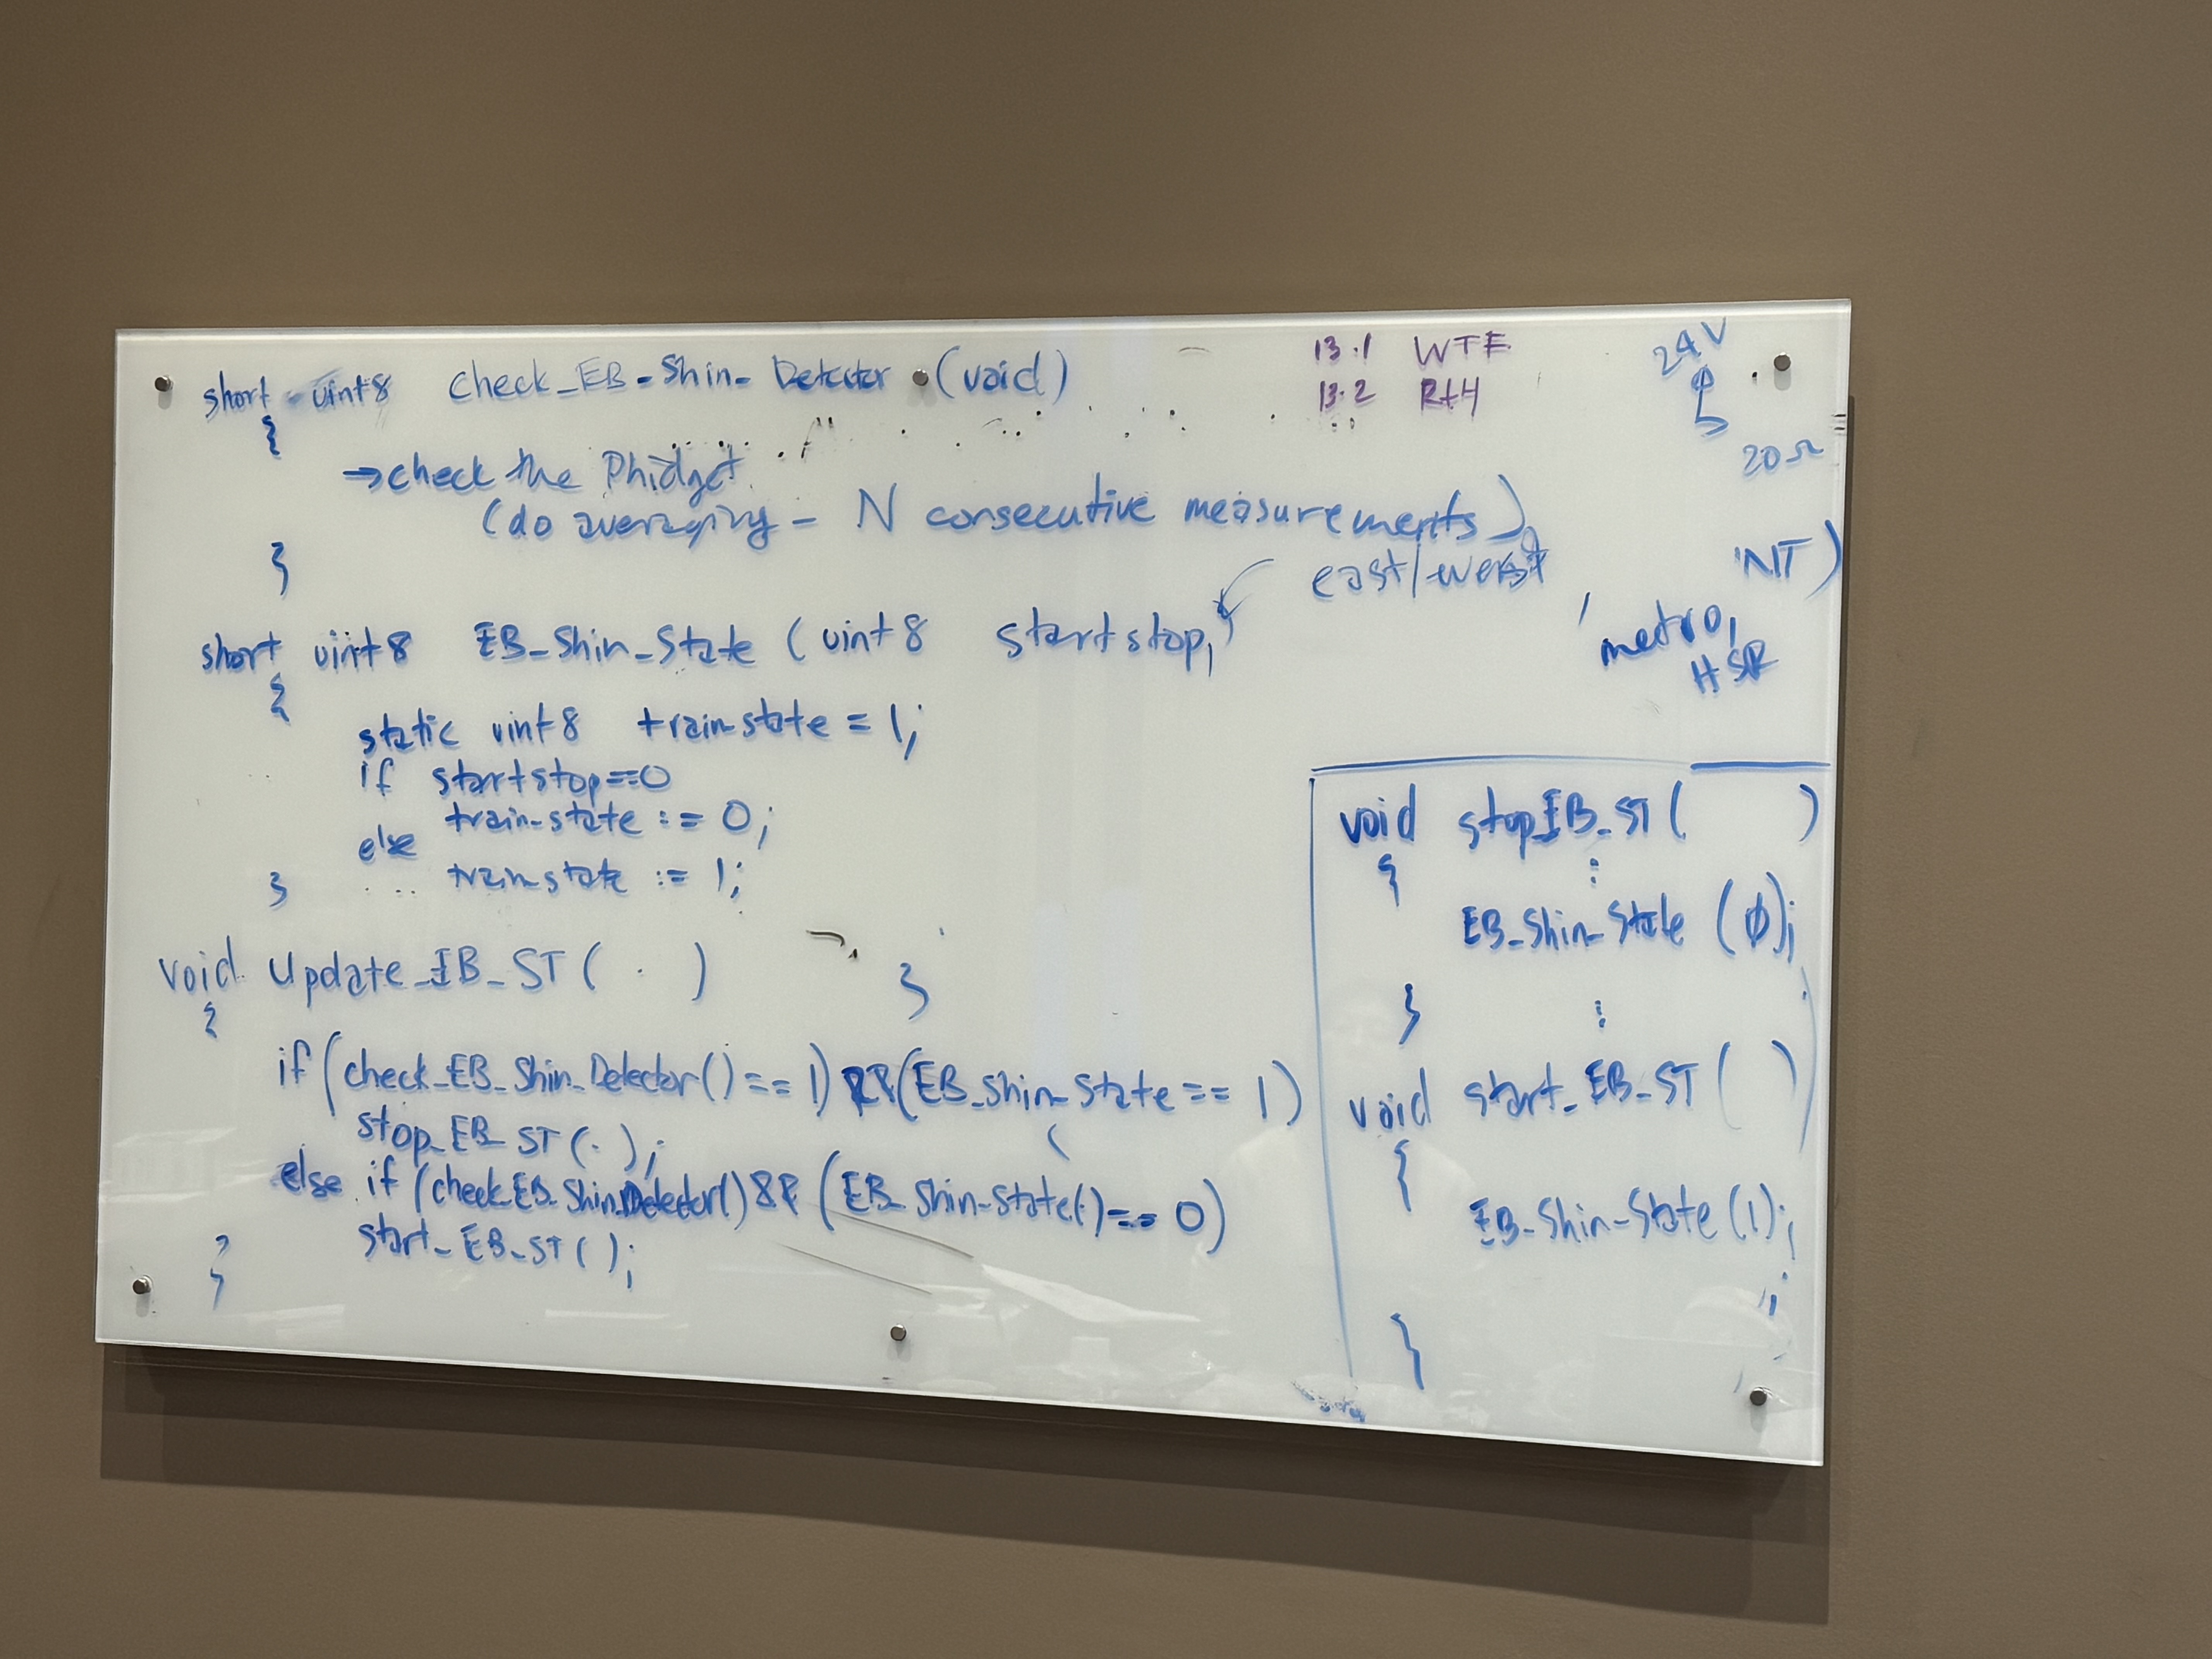 short uint8 check_EB_Shin_Detector (void)
{
→ check the Phidget
(do averaging - N consecutive measurements)
}
east/west
short uint8 EB_Shin_State (uint8 startstop,
, metro,
HSR
INT)
{
static uint8 train_state = 1;
if startstop==0
train_state := 0;
else
train_state := 1;
}
void Update_EB_ST ( )
{
if (check_EB_Shin_Detector() == 1) && (EB_Shin_State == 1)
stop_EB_ST ( );
else if (check_EB_Shin_Detector() && (EB_Shin_State() == 0)
start_EB_ST ( );
}
}
13.1 WTF
13.2 Rt4
24V
20Ω
void stop_EB_ST ( )
{
:
EB_Shin_State (ø);
}
:
void start_EB_ST ( )
{
EB_Shin_State (1);
}